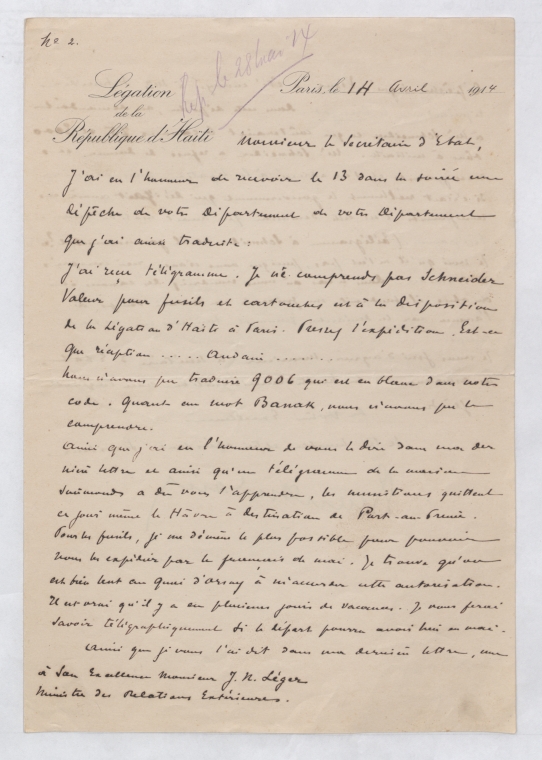 No 2.
Rep. le 28 Mai 14
Légation
de la
République d'Haïti
Paris, le 14 Avril 1914
Monsieur le Secrétaire d'Etat,
J'ai eu l'honneur de recevoir le 13 dans la soirée une
dépêche de votre Département de votre Département
que j'ai ainsi traduite:
J'ai reçu télégramme. Je ne comprends pas Schneider
Valeur pour fusils et cartouches est à la disposition
de la Légation d'Haïti à Paris. Pressez l'expédition. Est-ce
que réception ..... Audain .......
Nous n'avons pu traduire 9006 qui est en blanc dans notre
code. Quant au mot Banak, nous n'avons pu le
comprendre.
Ainsi que j'ai eu l'honneur de vous le dire dans ma der
nière lettre et ainsi qu'un télégramme de la maison
Simmonds a dû vous l'apprendre, les munitions quittent
ce jour même le Hâvre à destination de Port-au-Prince.
Pour les fusils, je me démène le plus possible pour pouvoir
vous les expédier par le français de mai. Je trouve qu'on
est bien lent au Quai d'Orsay à m'accorder cette autorisation.
Il est vrai qu'il y a eu plusieurs jours de vacances. Je vous ferai
savoir télégraphiquement si le départ pourra avoir lieu en mai.
Ainsi que je vous l'ai dit dans ma dernière lettre, une
à Son Excellence Monsieur J. N. Léger
Ministre des Relations Extérieures.